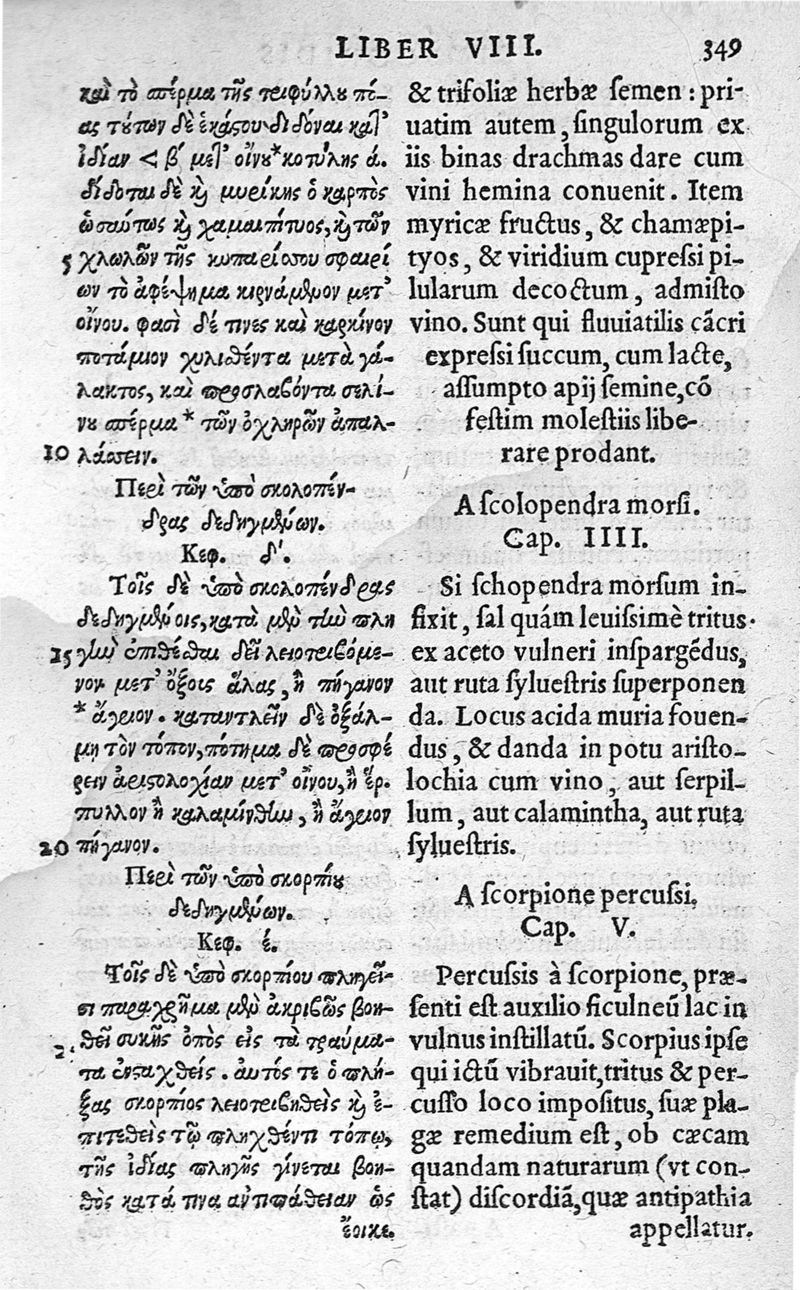 LIBER VIII. 349
καὶ τὸ σπέρμα τῆς τριφύλλου πό-
ας τούτων δὲ ἑκάστου διδόναι κατ᾽
ἰδίαν < β´ μετ᾽ οἴνου * κοτύλης ά.
δίδοται δὲ καὶ μυρίκης ὁ καρπὸς
ὡσαύτως καὶ χαμαιπίτυος, καὶ τῶν
5 χλωρῶν τῆς κυπαρίσσου σφαιρί
ων τὸ ἀφέψημα κιρνάμενον μετ᾽
οἴνου. φασὶ δέ τινες καὶ καρκίνον
ποτάμιον χυλιθέντα μετὰ γά-
λακτος, καὶ προσλαβόντα σελί-
νου σπέρμα * τῶν ὀχληρῶν ἀπαλ-
10 λάσσειν.
Περὶ τῶν ὑπὸ σκολοπέν-
δρας δεδηγμένων.
Κεφ. δ´.
Τοῖς δὲ ὑπὸ σκολοπένδρας
δεδηγμένοις, κατὰ μὲν τὴν πλη
15 γὴν ἐπιθέσθαι δεῖ λειοτριβόμε-
νον μετ᾽ ὄξοις ἅλας, ἢ πήγανον
* ἄγριον. καταντλεῖν δὲ ὀξάλ-
μη τὸν τόπον, πότημα δὲ προσφέ
ρειν ἀριστολοχίαν μετ᾽ οἴνου, ἢ ἕρ.
πυλλον ἢ καλαμίνθην, ἢ ἄγριον
20 πήγανον.
Περὶ τῶν ὑπὸ σκορπίου
δεδηγμένων.
Κεφ. έ.
Τοῖς δὲ ὑπὸ σκορπίου πληγεῖ-
σι παραχρῆμα μὲν ἀκριβῶς βοη-
2. θεῖ συκῆς ὀπὸς εἰς τὰ τραύμα-
τα ἐνσταχθείς. αὐτός τε ὁ πλή-
ξας σκορπίος λειοτριβηθεὶς καὶ ἐ-
πιτεθεὶς τῷ πληχθέντι τόπῳ,
τῆς ἰδίας πληγῆς γίνεται βοη-
θὸς κατά τινα ἀντιπάθειαν ὡς
ἔοικε.
& trifoliæ herbæ semen : pri-
uatim autem, singulorum ex
iis binas drachmas dare cum
vini hemina conuenit. Item
myricæ fructus, & chamæpi-
tyos, & viridium cupressi pi-
lularum decoctum, admisto
vino. Sunt qui fluuiatilis cãcri
expressi succum, cum lacte,
assumpto apij semine, cõ
festim molestiis libe-
rare prodant.
A scolopendra morsi.
Cap. IIII.
Si schopendra morsum in-
fixit, sal quám leuissimè tritus
ex aceto vulneri inspargẽdus,
aut ruta syluestris superponen
da. Locus acida muria fouen-
dus, & danda in potu aristo-
lochia cum vino, aut serpil-
lum, aut calamintha, aut ruta
syluestris.
A scorpione percussi.
Cap. V.
Percussis à scorpione, præ-
senti est auxilio ficulneũ lac in
vulnus instillatũ. Scorpius ipse
qui ictũ vibrauit, tritus & per-
cusso loco impositus, suæ pla-
gæ remedium est, ob cæcam
quandam naturarum (vt con-
stat) discordiã, quæ antipathia
appellatur.